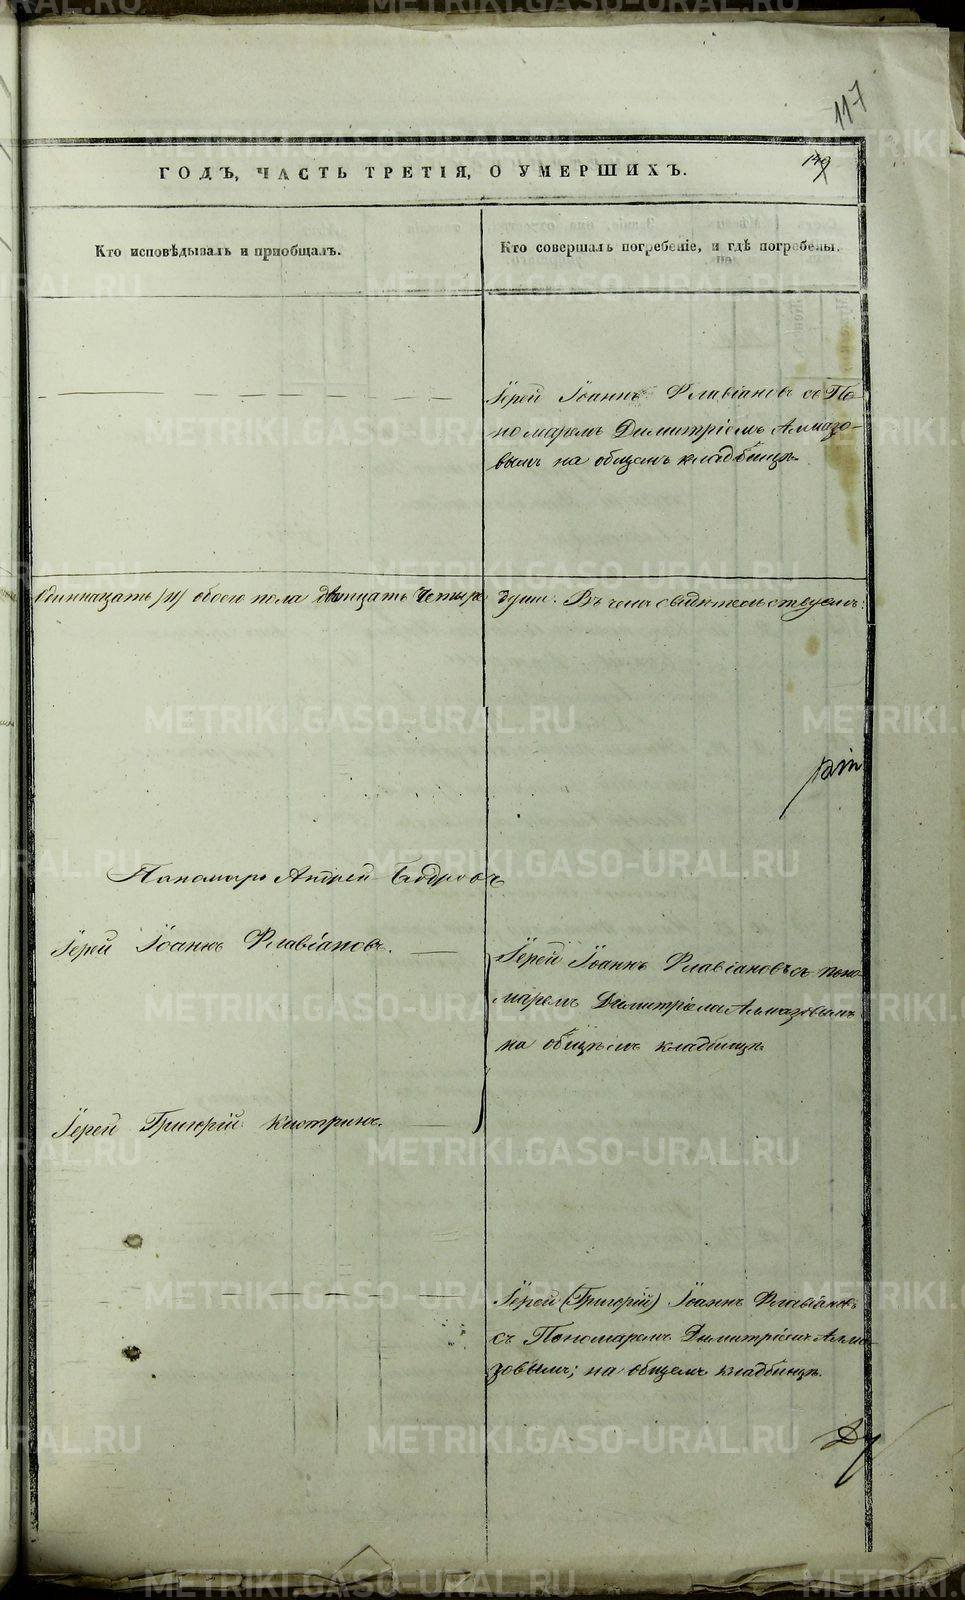 117
139
ГОДЪ, ЧАСТЬ ТРЕТІЯ, О УМЕРШИХЪ.
Кто исповѣдывалъ и пріобщалъ.
Кто совершалъ погребеніе, и гдѣ погребены.
Іерей Іоаннъ Флавіановъ съ По-
номаремъ Димитріемъ Алмазо-
вымъ на общемъ кладбищѣ.
Одиннацать /11/ обоего пола двацать четыре душъ. Въ чемъ свидѣтельствуемъ:
Панамарь Андрей Бодровъ
Іерей Іоаннъ Флавіановъ.
Іерей Іоаннъ Флавіановъ съ поно-
маремъ Димитріемъ Алмазовымъ
на общемъ кладбищѣ.
Іерей Григорій Кастринъ.
Іерей (Григорій) Іоаннъ Флавіановъ
съ Пономаремъ Димитріемъ Алма-
зовымъ; на общемъ кладбищѣ.
METRIKI.GASO-URAL.RU